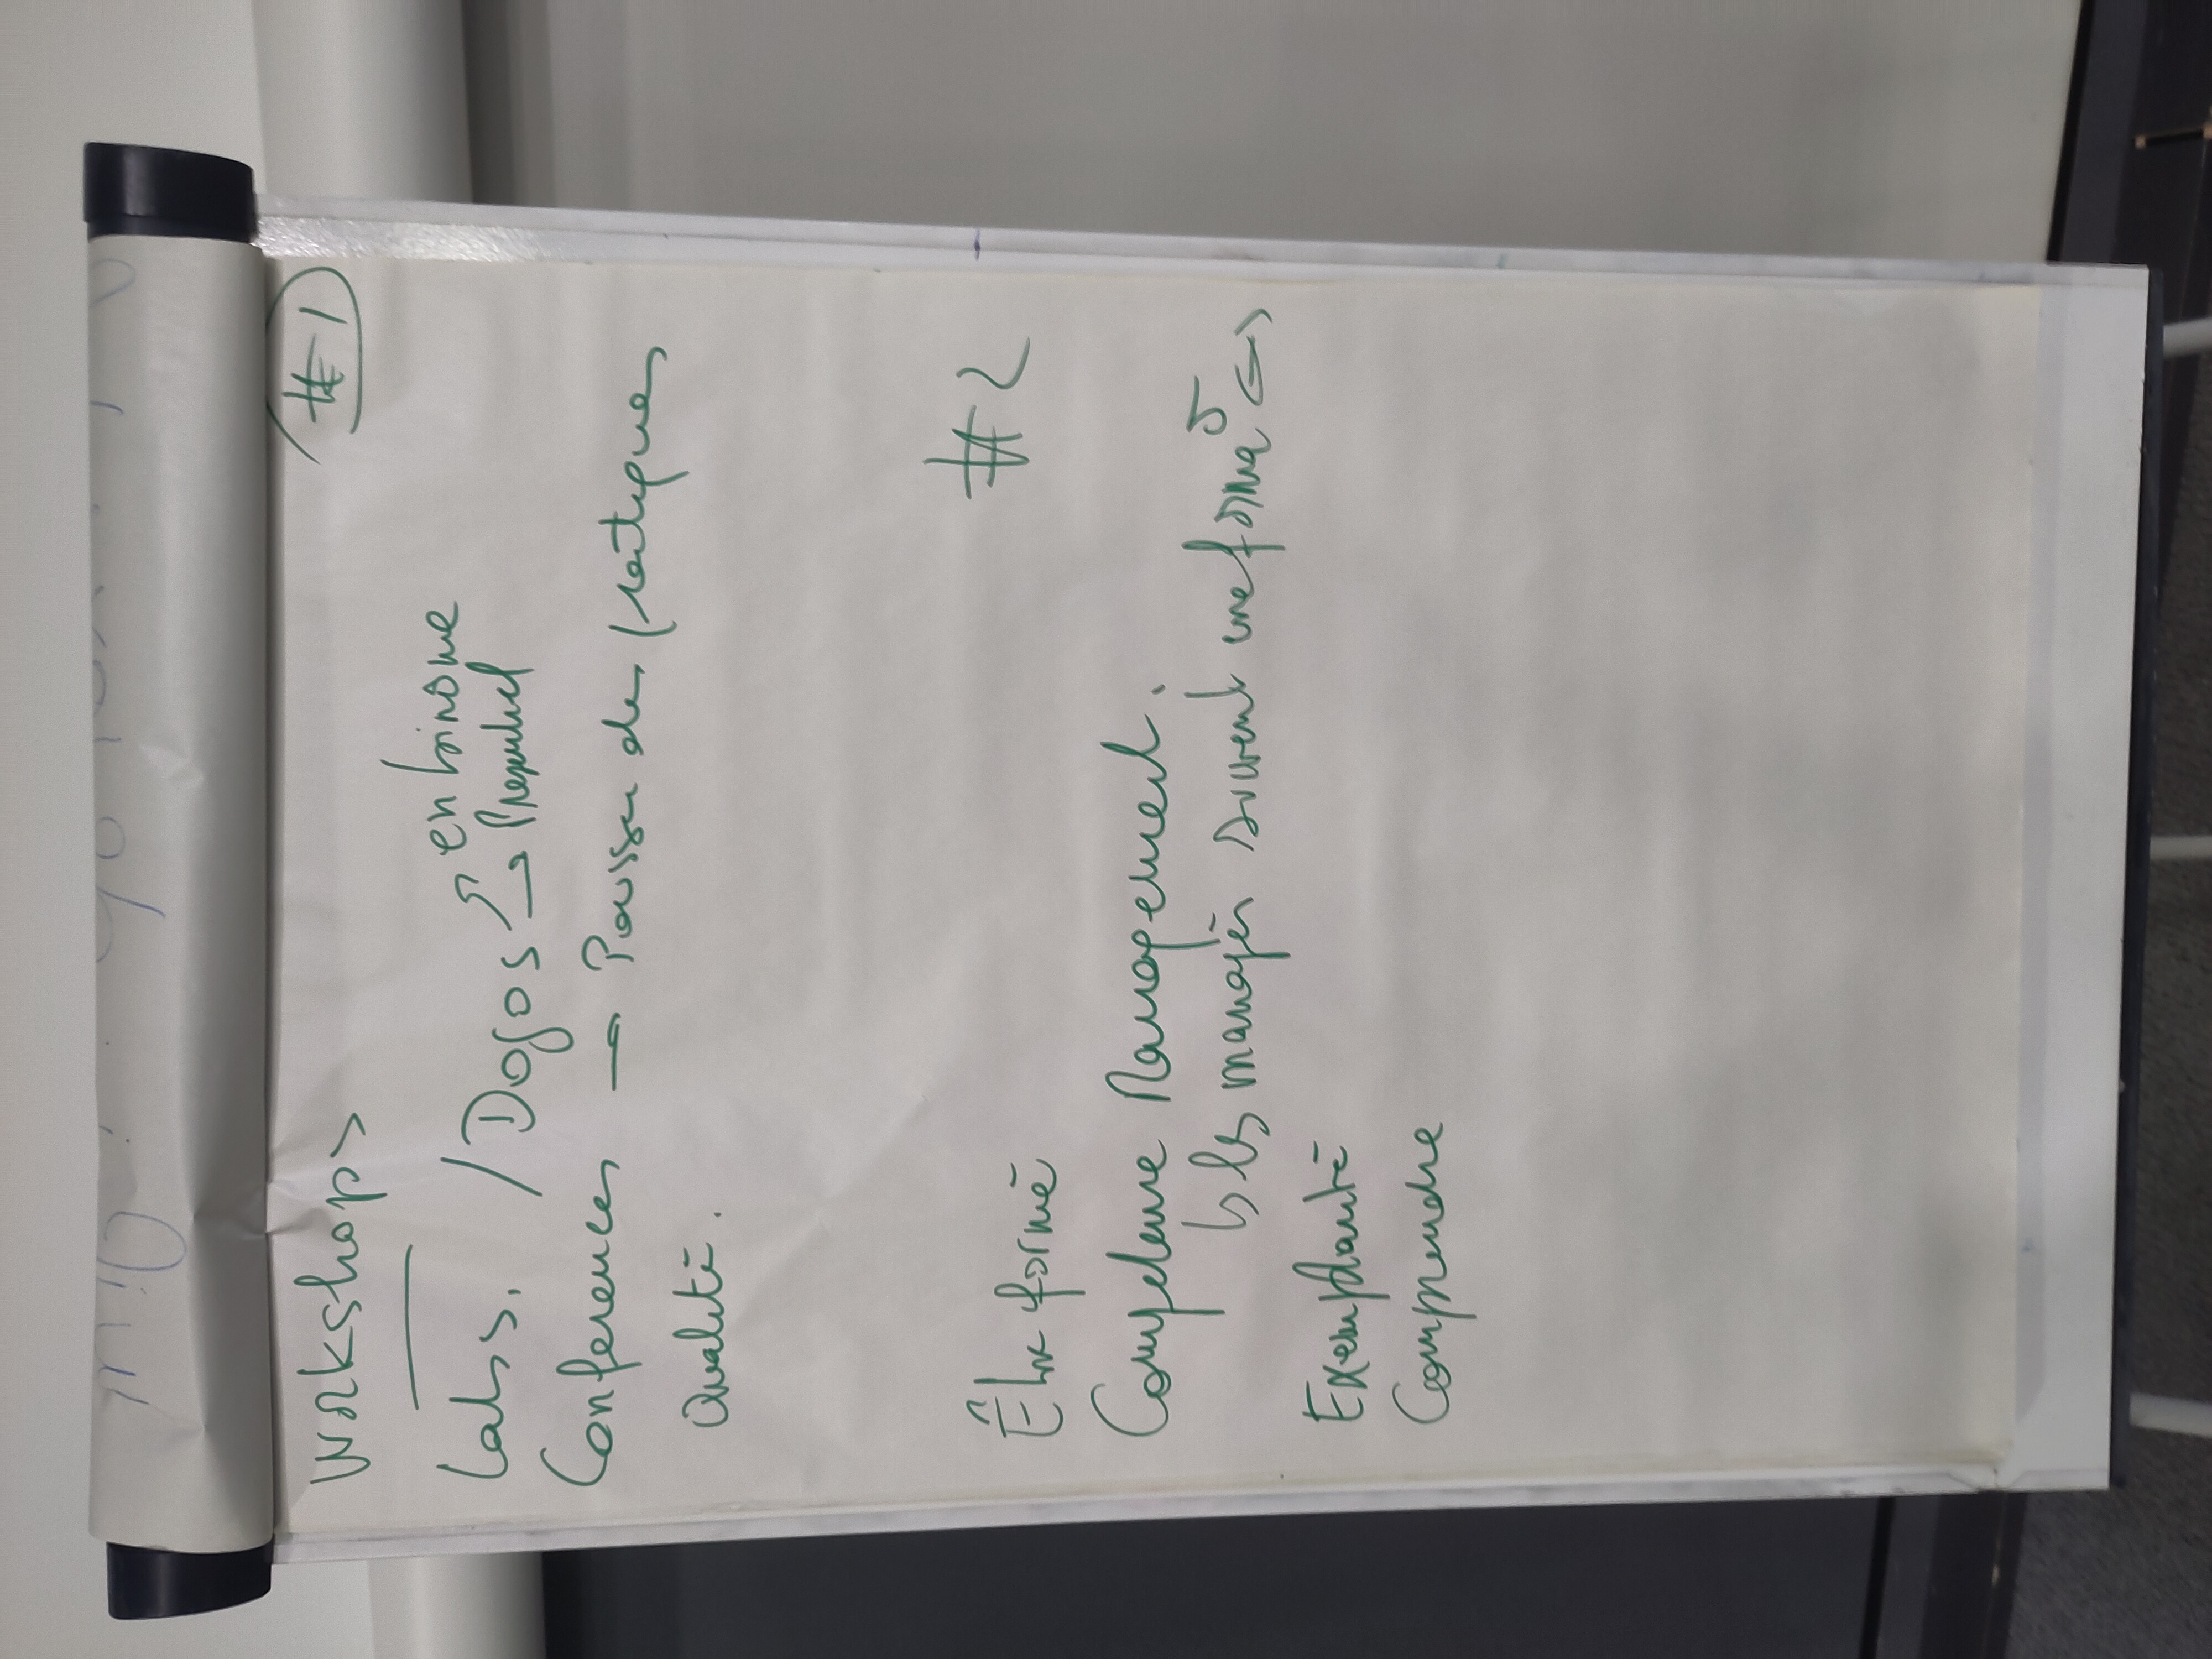 Workshops
#1
Labs. / Dojos → en binome
→ Présentiel
Conferences → Pousser des pratiques
Qualité.
#2
Être formé
Competence Management.
↳ les managers suivent une forma°
Exemplarité
Comprendre